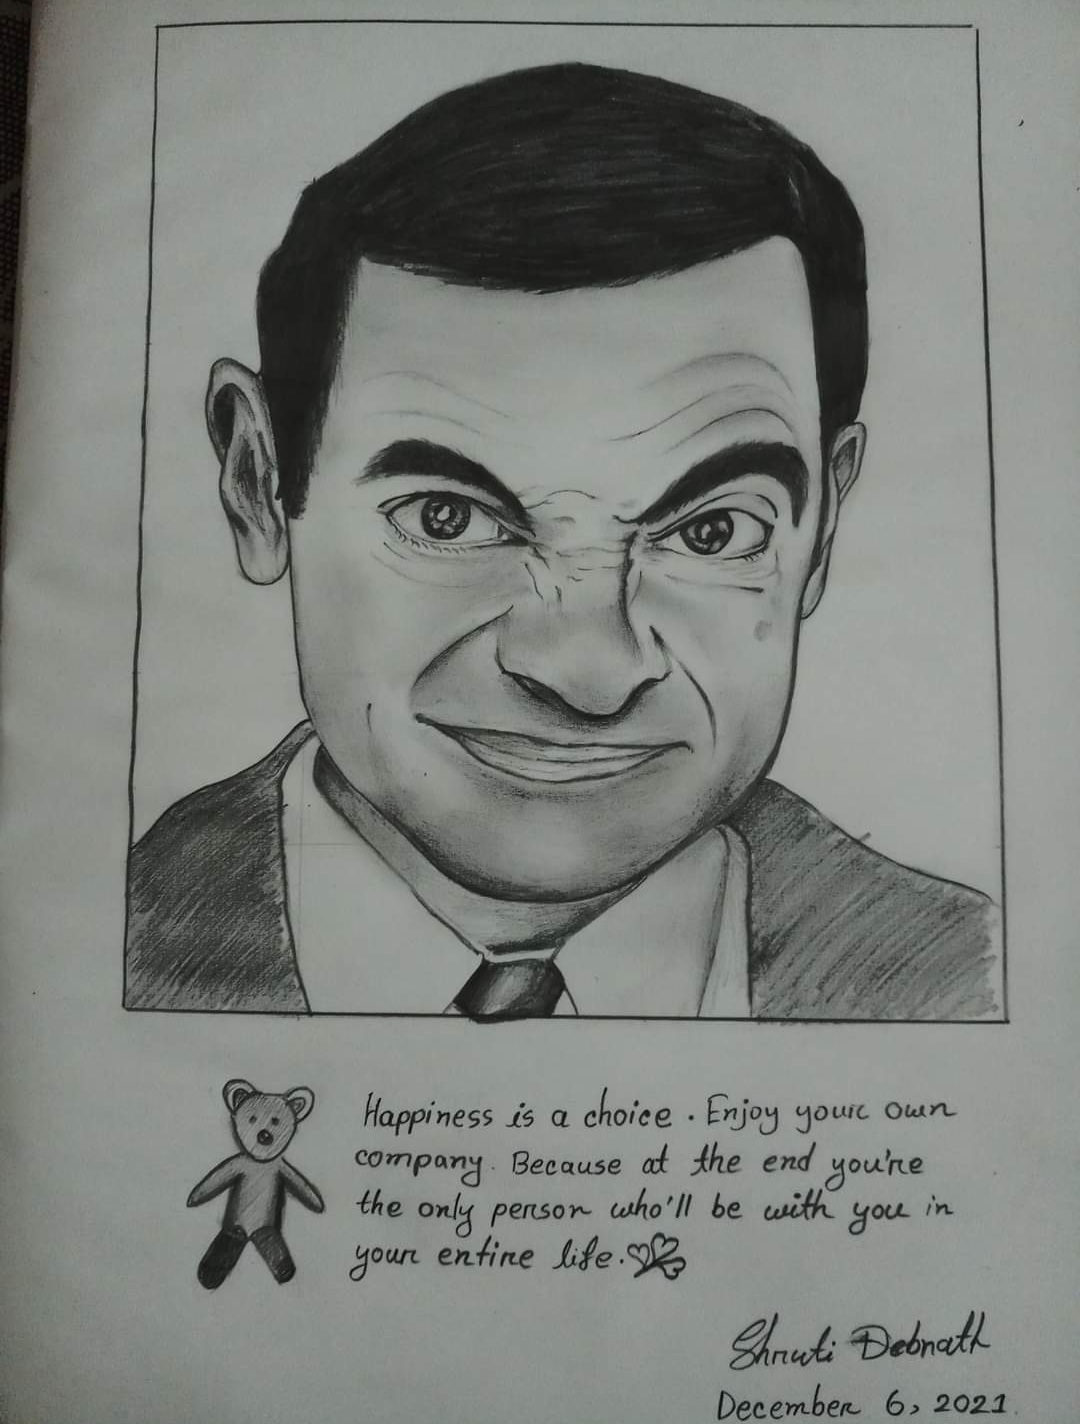 Happiness is a choice. Enjoy your own
company. Because at the end you're
the only person who'll be with you in
your entire life.
Shruti Debnath
December 6, 2021